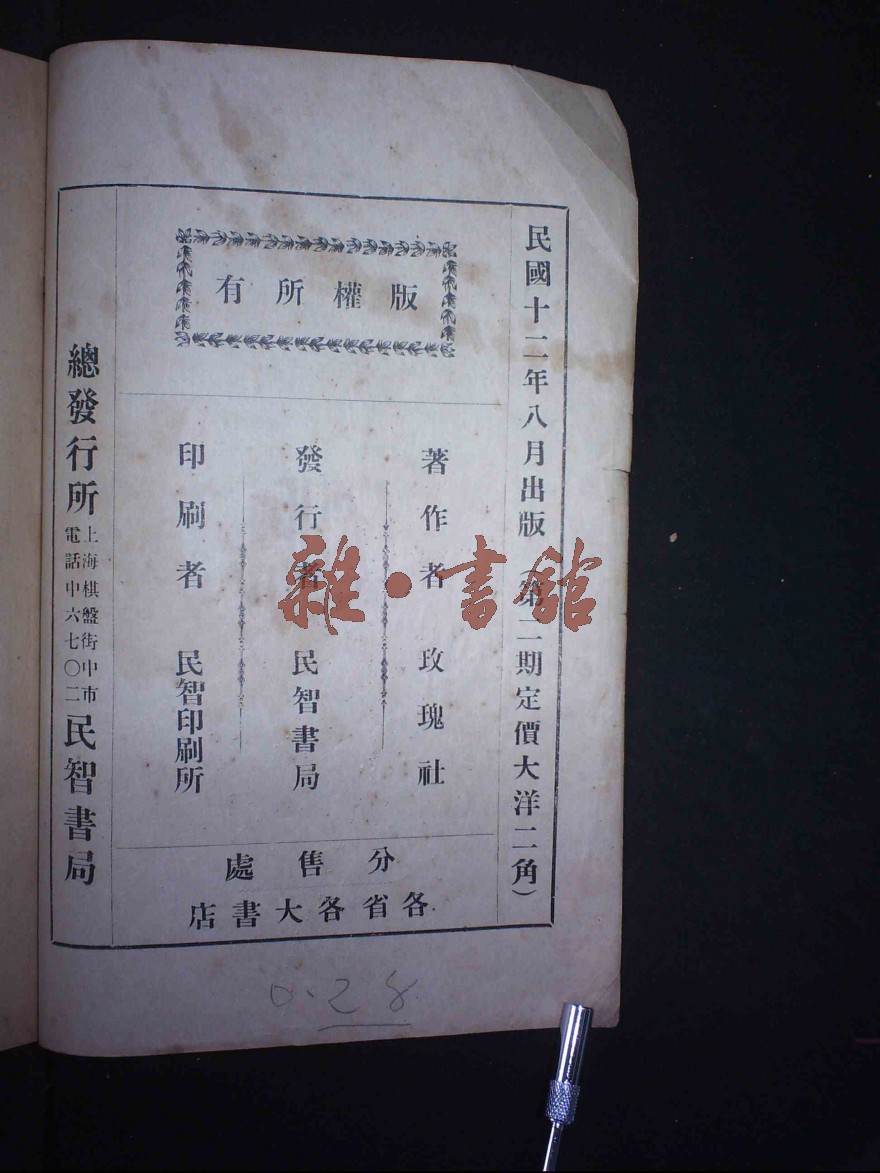 民國十二年八月出版（第二期定價大洋二角）
版權所有
著作者 玫瑰社
發行者 民智書局
印刷者 民智印刷所
分售處
各省各大書店
總發行所 上海棋盤街中市 民智書局
電話中六七〇二
雜·書館
0.28